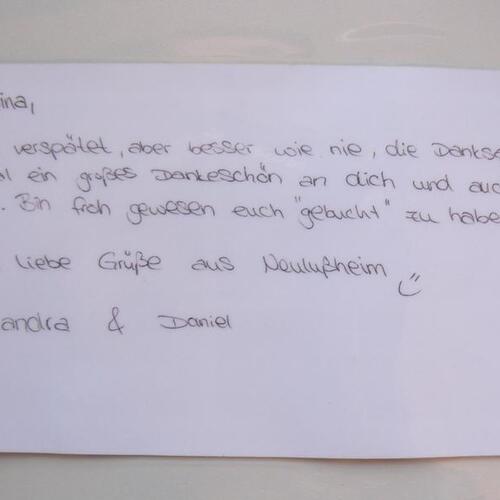 ina,
verspätet, aber besser wie nie, die Dankse
l ein großes Dankeschön an dich und auc
. Bin froh gewesen euch "gebucht" zu habe
liebe Grüße aus Neulußheim
andra & Daniel